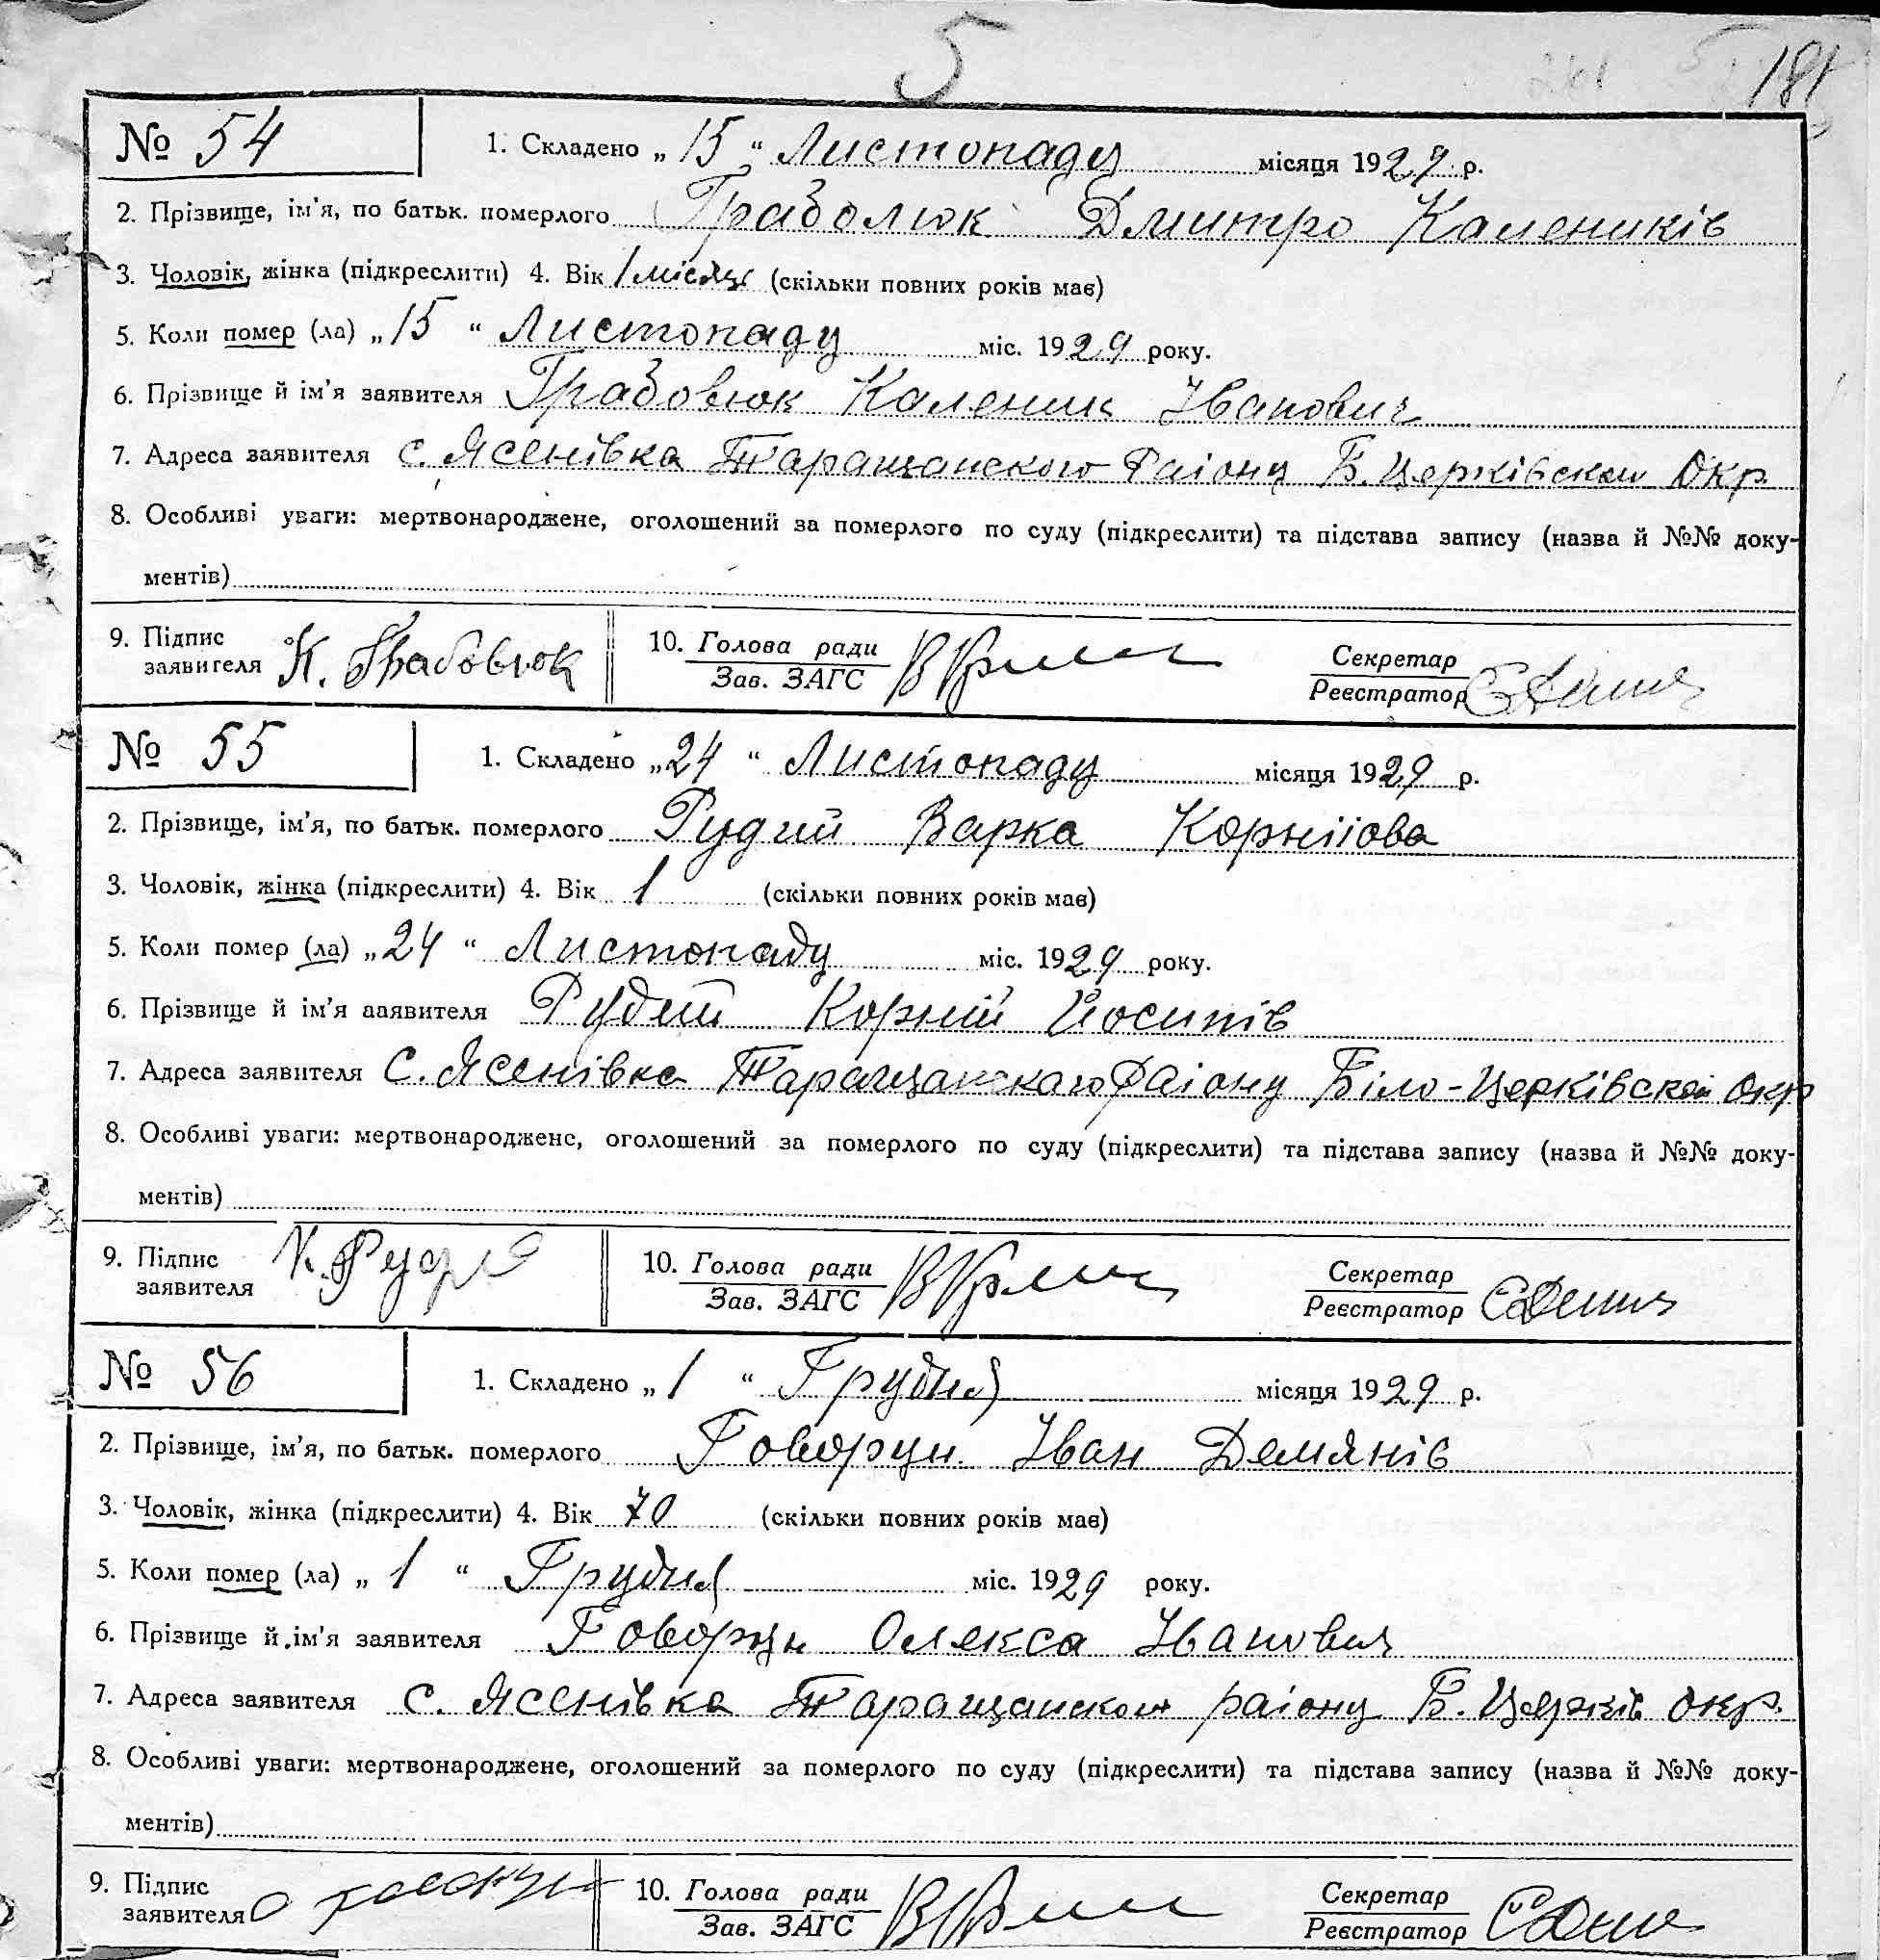 5
181
№ 54
1. Складено „ 15 “ Листопаду місяця 1929 р.
2. Прізвище, ім'я, по батьк. померлого Граболюк Дмитро Калеників
3. Чоловік, жінка (підкреслити) 4. Вік 1 місяць (скільки повних років має)
5. Коли помер (ла) „ 15 “ Листопаду міс. 1929 року.
6. Прізвище й ім'я заявителя Грабовюк Каленик Іванович
7. Адреса заявителя с. Ясенівка Таращанского Району Б. Церківскои Окр.
8. Особливі уваги: мертвонароджене, оголошений за померлого по суду (підкреслити) та підстава запису (назва й №№ доку-
ментів)
9. Підпис заявителя К. Грабовюк
10. Голова ради
Зав. ЗАГС
Секретар
Реєстратор
№ 55
1. Складено „ 24 “ Листопаду місяця 1929 р.
2. Прізвище, ім'я, по батьк. померлого Рудий Варка Корніiова
3. Чоловік, жінка (підкреслити) 4. Вік 1 (скільки повних років має)
5. Коли помер (ла) „ 24 “ Листопаду міс. 1929 року.
6. Прізвище й ім'я заявителя Рудий Корній Йосипів
7. Адреса заявителя С. Ясенівка Таращанского Району Біло-Церківскои Окр
8. Особливі уваги: мертвонароджене, оголошений за померлого по суду (підкреслити) та підстава запису (назва й №№ доку-
ментів)
9. Підпис заявителя К.
10. Голова ради
Зав. ЗАГС
Секретар
Реєстратор
№ 56
1. Складено „ 1 “ Грудня місяця 1929 р.
2. Прізвище, ім'я, по батьк. померлого Говорун Іван Демянів
3. Чоловік, жінка (підкреслити) 4. Вік 70 (скільки повних років має)
5. Коли помер (ла) „ 1 “ Грудня міс. 1929 року.
6. Прізвище й ім'я заявителя Говорун Олекса Іванович
7. Адреса заявителя с. Ясенівка Таращанского району Б. Церків Окр.
8. Особливі уваги: мертвонароджене, оголошений за померлого по суду (підкреслити) та підстава запису (назва й №№ доку-
ментів)
9. Підпис заявителя О
10. Голова ради
Зав. ЗАГС
Секретар
Реєстратор